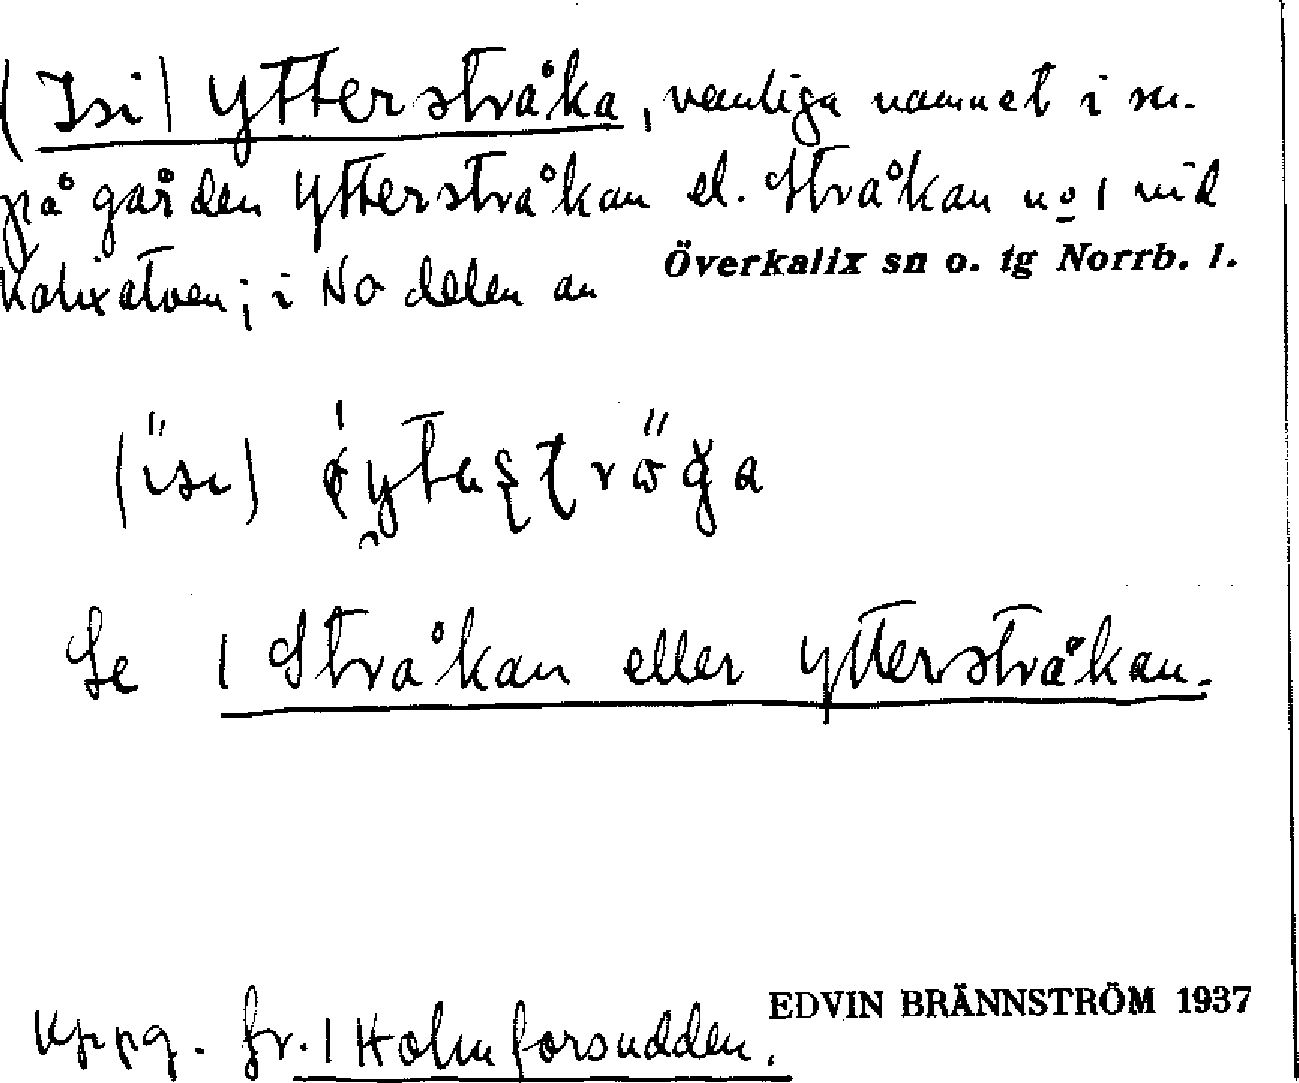 (Isi) Ytterstråka, vanliga namnet i sn.
på gården Ytterstråkan el. Stråkan no 1 vid
Kalixälven; i NO delen av
Överkalix sn o. tg Norrb. l.
Se 1 Stråkan eller Ytterstråkan.
EDVIN BRÄNNSTRÖM 1937
Uppg. fr. 1 Holmforsudden.